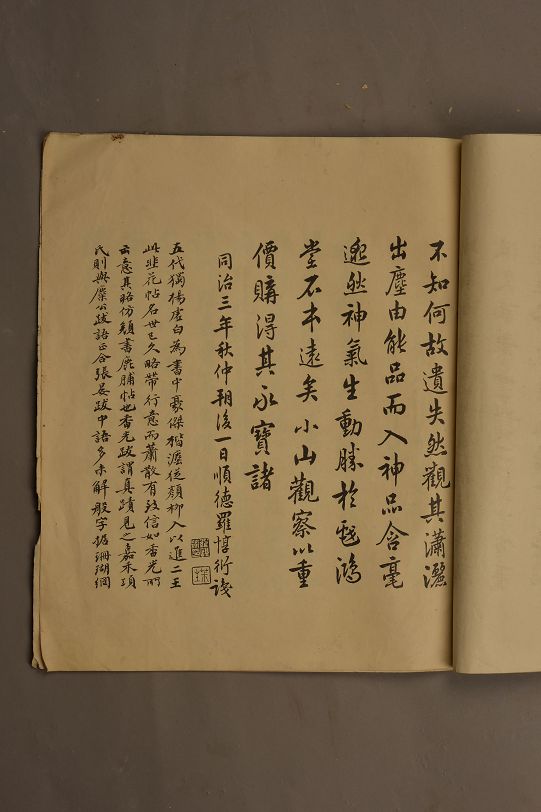 不知何故遺失然觀其瀟灑
出塵由能品而入神品含毫
邈然神氣生動勝於戲鴻
堂石本遠矣小山觀察以重
價購得其永寶諸
同治三年秋仲朔後一日順德羅惇衍謹
五代獨楊虛白為書中豪傑楷灋從顏柳入以進二王
此韭花帖名世已久略帶行意而蕭散有致信如香光所
云意其昭仿顏書鹿脯帖也香光跋謂真蹟見之嘉禾項
氏則與麋公跋語正合張晏跋中語多未解般字據珊瑚網